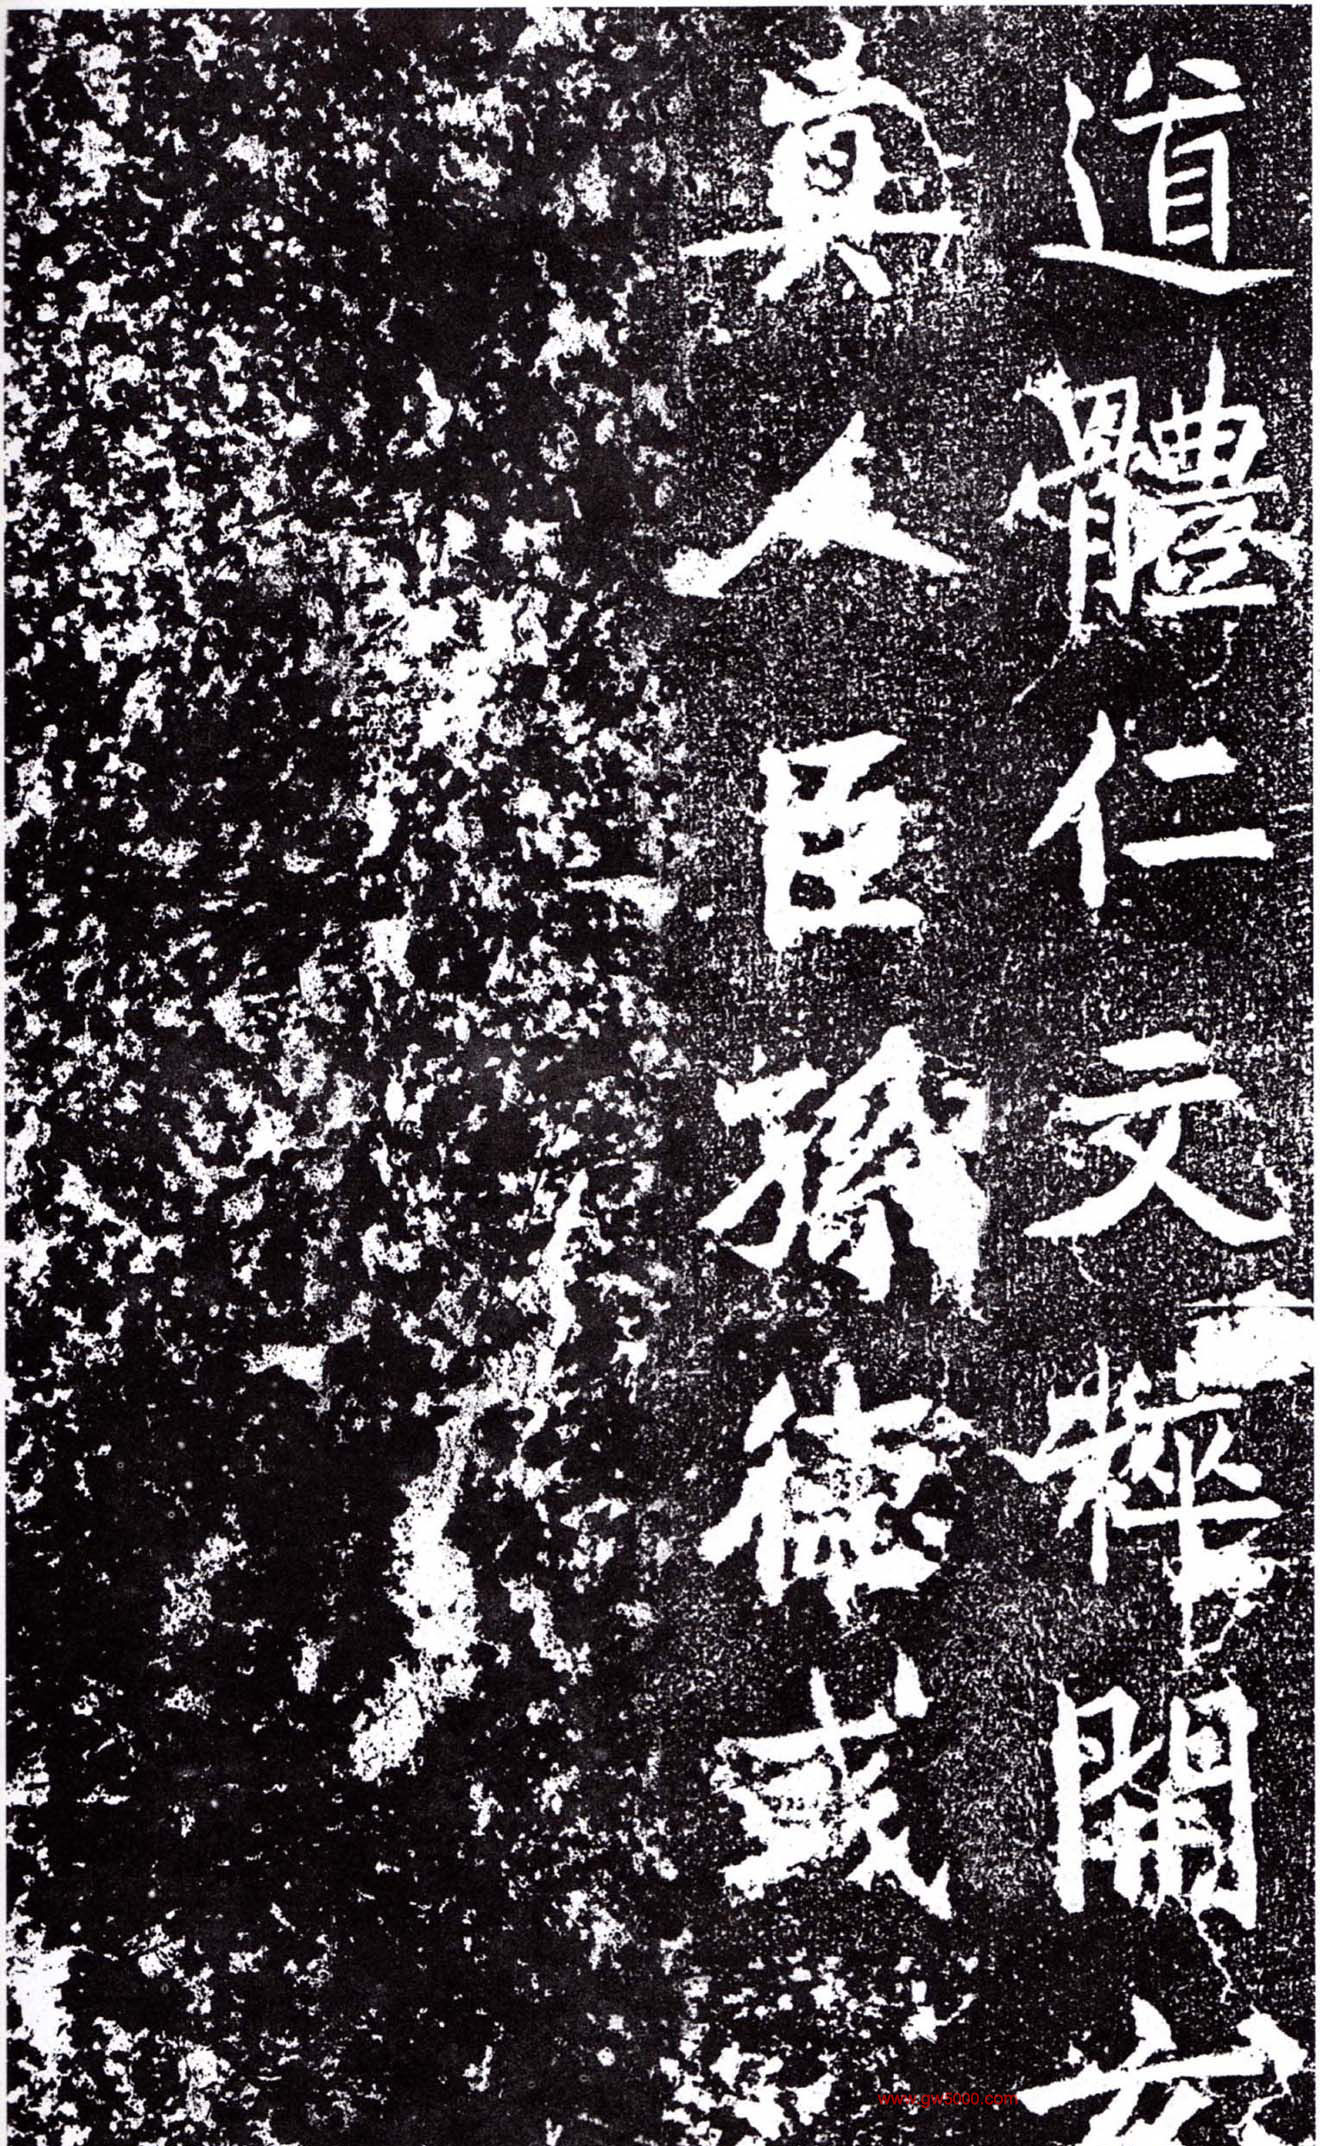 道體仁文粹開玄
真人臣孫德彧
www.gw5000.com